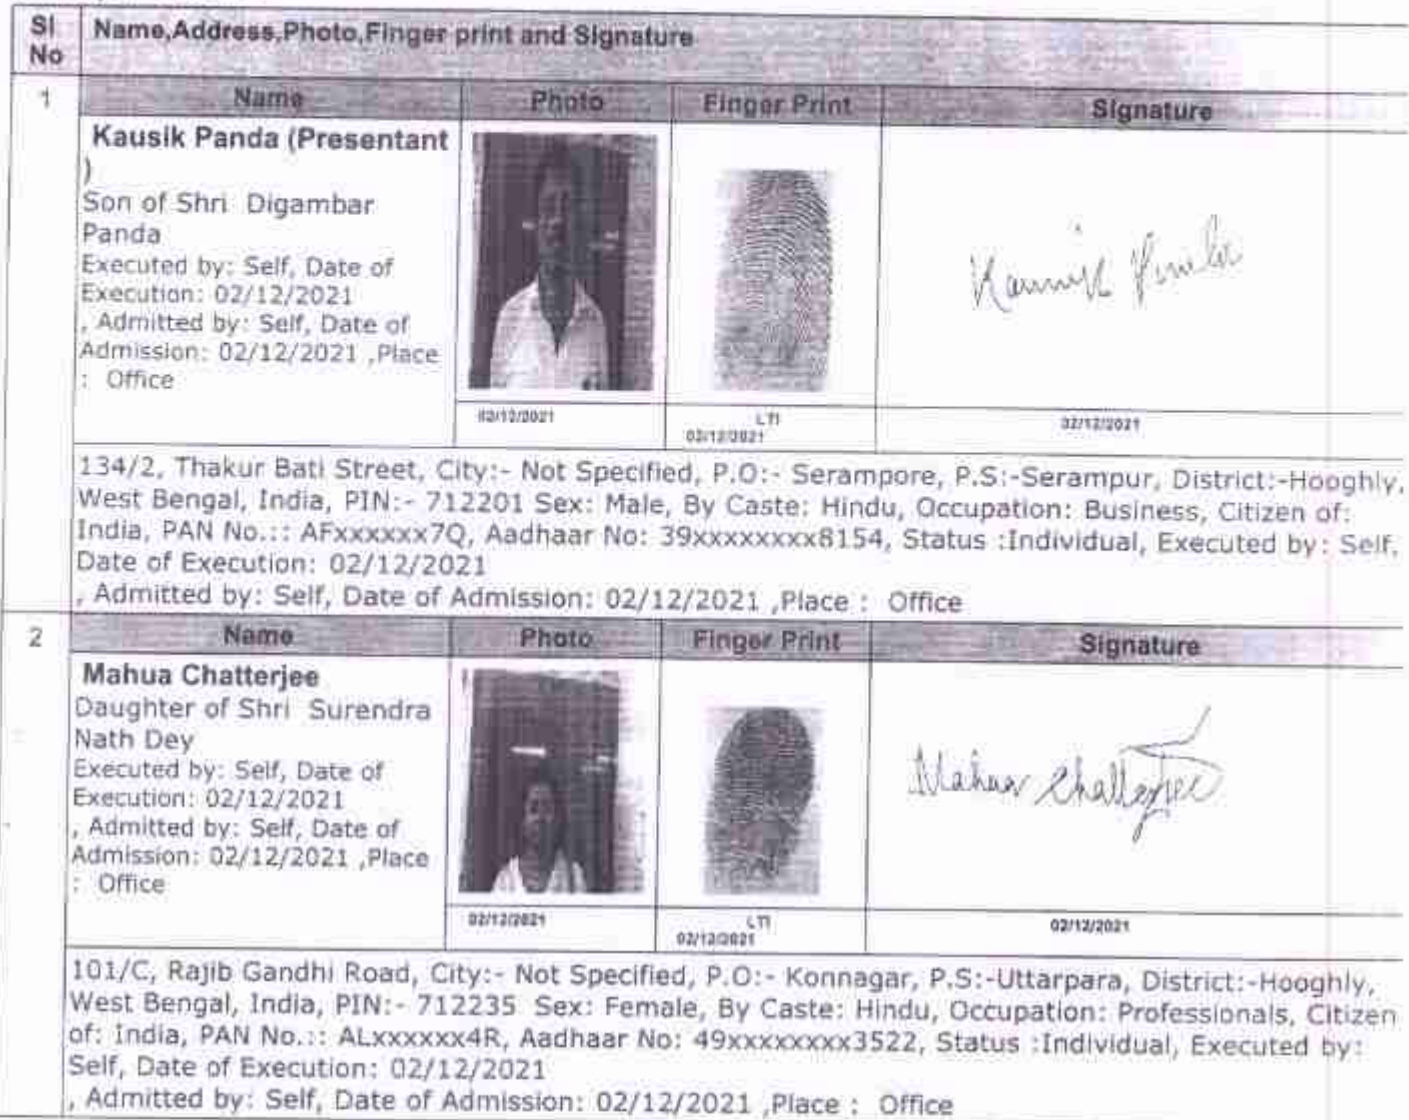 Sl No
Name,Address,Photo,Finger print and Signature
1
Name
Photo
Finger Print
Signature
Kausik Panda (Presentant
)
Son of Shri Digambar
Panda
Executed by: Self, Date of
Execution: 02/12/2021
, Admitted by: Self, Date of
Admission: 02/12/2021 ,Place
: Office
02/12/2021
LTI
02/12/2021
02/12/2021
134/2, Thakur Bati Street, City:- Not Specified, P.O:- Serampore, P.S:-Serampur, District:-Hooghly,
West Bengal, India, PIN:- 712201 Sex: Male, By Caste: Hindu, Occupation: Business, Citizen of:
India, PAN No.:: AFxxxxxx7Q, Aadhaar No: 39xxxxxxxx8154, Status :Individual, Executed by: Self,
Date of Execution: 02/12/2021
, Admitted by: Self, Date of Admission: 02/12/2021 ,Place : Office
2
Name
Photo
Finger Print
Signature
Mahua Chatterjee
Daughter of Shri Surendra
Nath Dey
Executed by: Self, Date of
Execution: 02/12/2021
, Admitted by: Self, Date of
Admission: 02/12/2021 ,Place
: Office
Mahua Chatterjee
02/12/2021
LTI
02/12/2021
02/12/2021
101/C, Rajib Gandhi Road, City:- Not Specified, P.O:- Konnagar, P.S:-Uttarpara, District:-Hooghly,
West Bengal, India, PIN:- 712235 Sex: Female, By Caste: Hindu, Occupation: Professionals, Citizen
of: India, PAN No.:: ALxxxxxx4R, Aadhaar No: 49xxxxxxxx3522, Status :Individual, Executed by:
Self, Date of Execution: 02/12/2021
, Admitted by: Self, Date of Admission: 02/12/2021 ,Place : Office